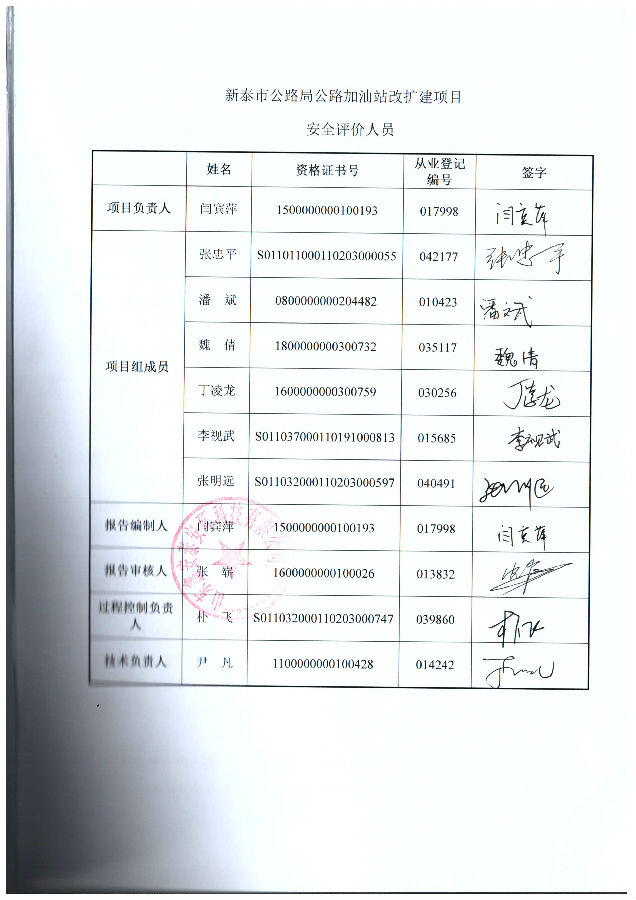 新泰市公路局公路加油站改扩建项目
安全评价人员
姓名 资格证书号 从业登记编号 签字
项目负责人 闫宾萍 1500000000100193 017998 闫宾萍
项目组成员 张忠平 S011011000110203000055 042177 张忠平
潘 斌 0800000000204482 010423 潘斌
魏 倩 1800000000300732 035117 魏倩
丁凌龙 1600000000300759 030256 丁凌龙
李视武 S011037000110191000813 015685 李视武
张明远 S011032000110203000597 040491 张明远
报告编制人 闫宾萍 1500000000100193 017998 闫宾萍
报告审核人 张 崭 1600000000100026 013832
过程控制负责人 朴 飞 S011032000110203000747 039860 朴飞
技术负责人 尹 凡 1100000000100428 014242